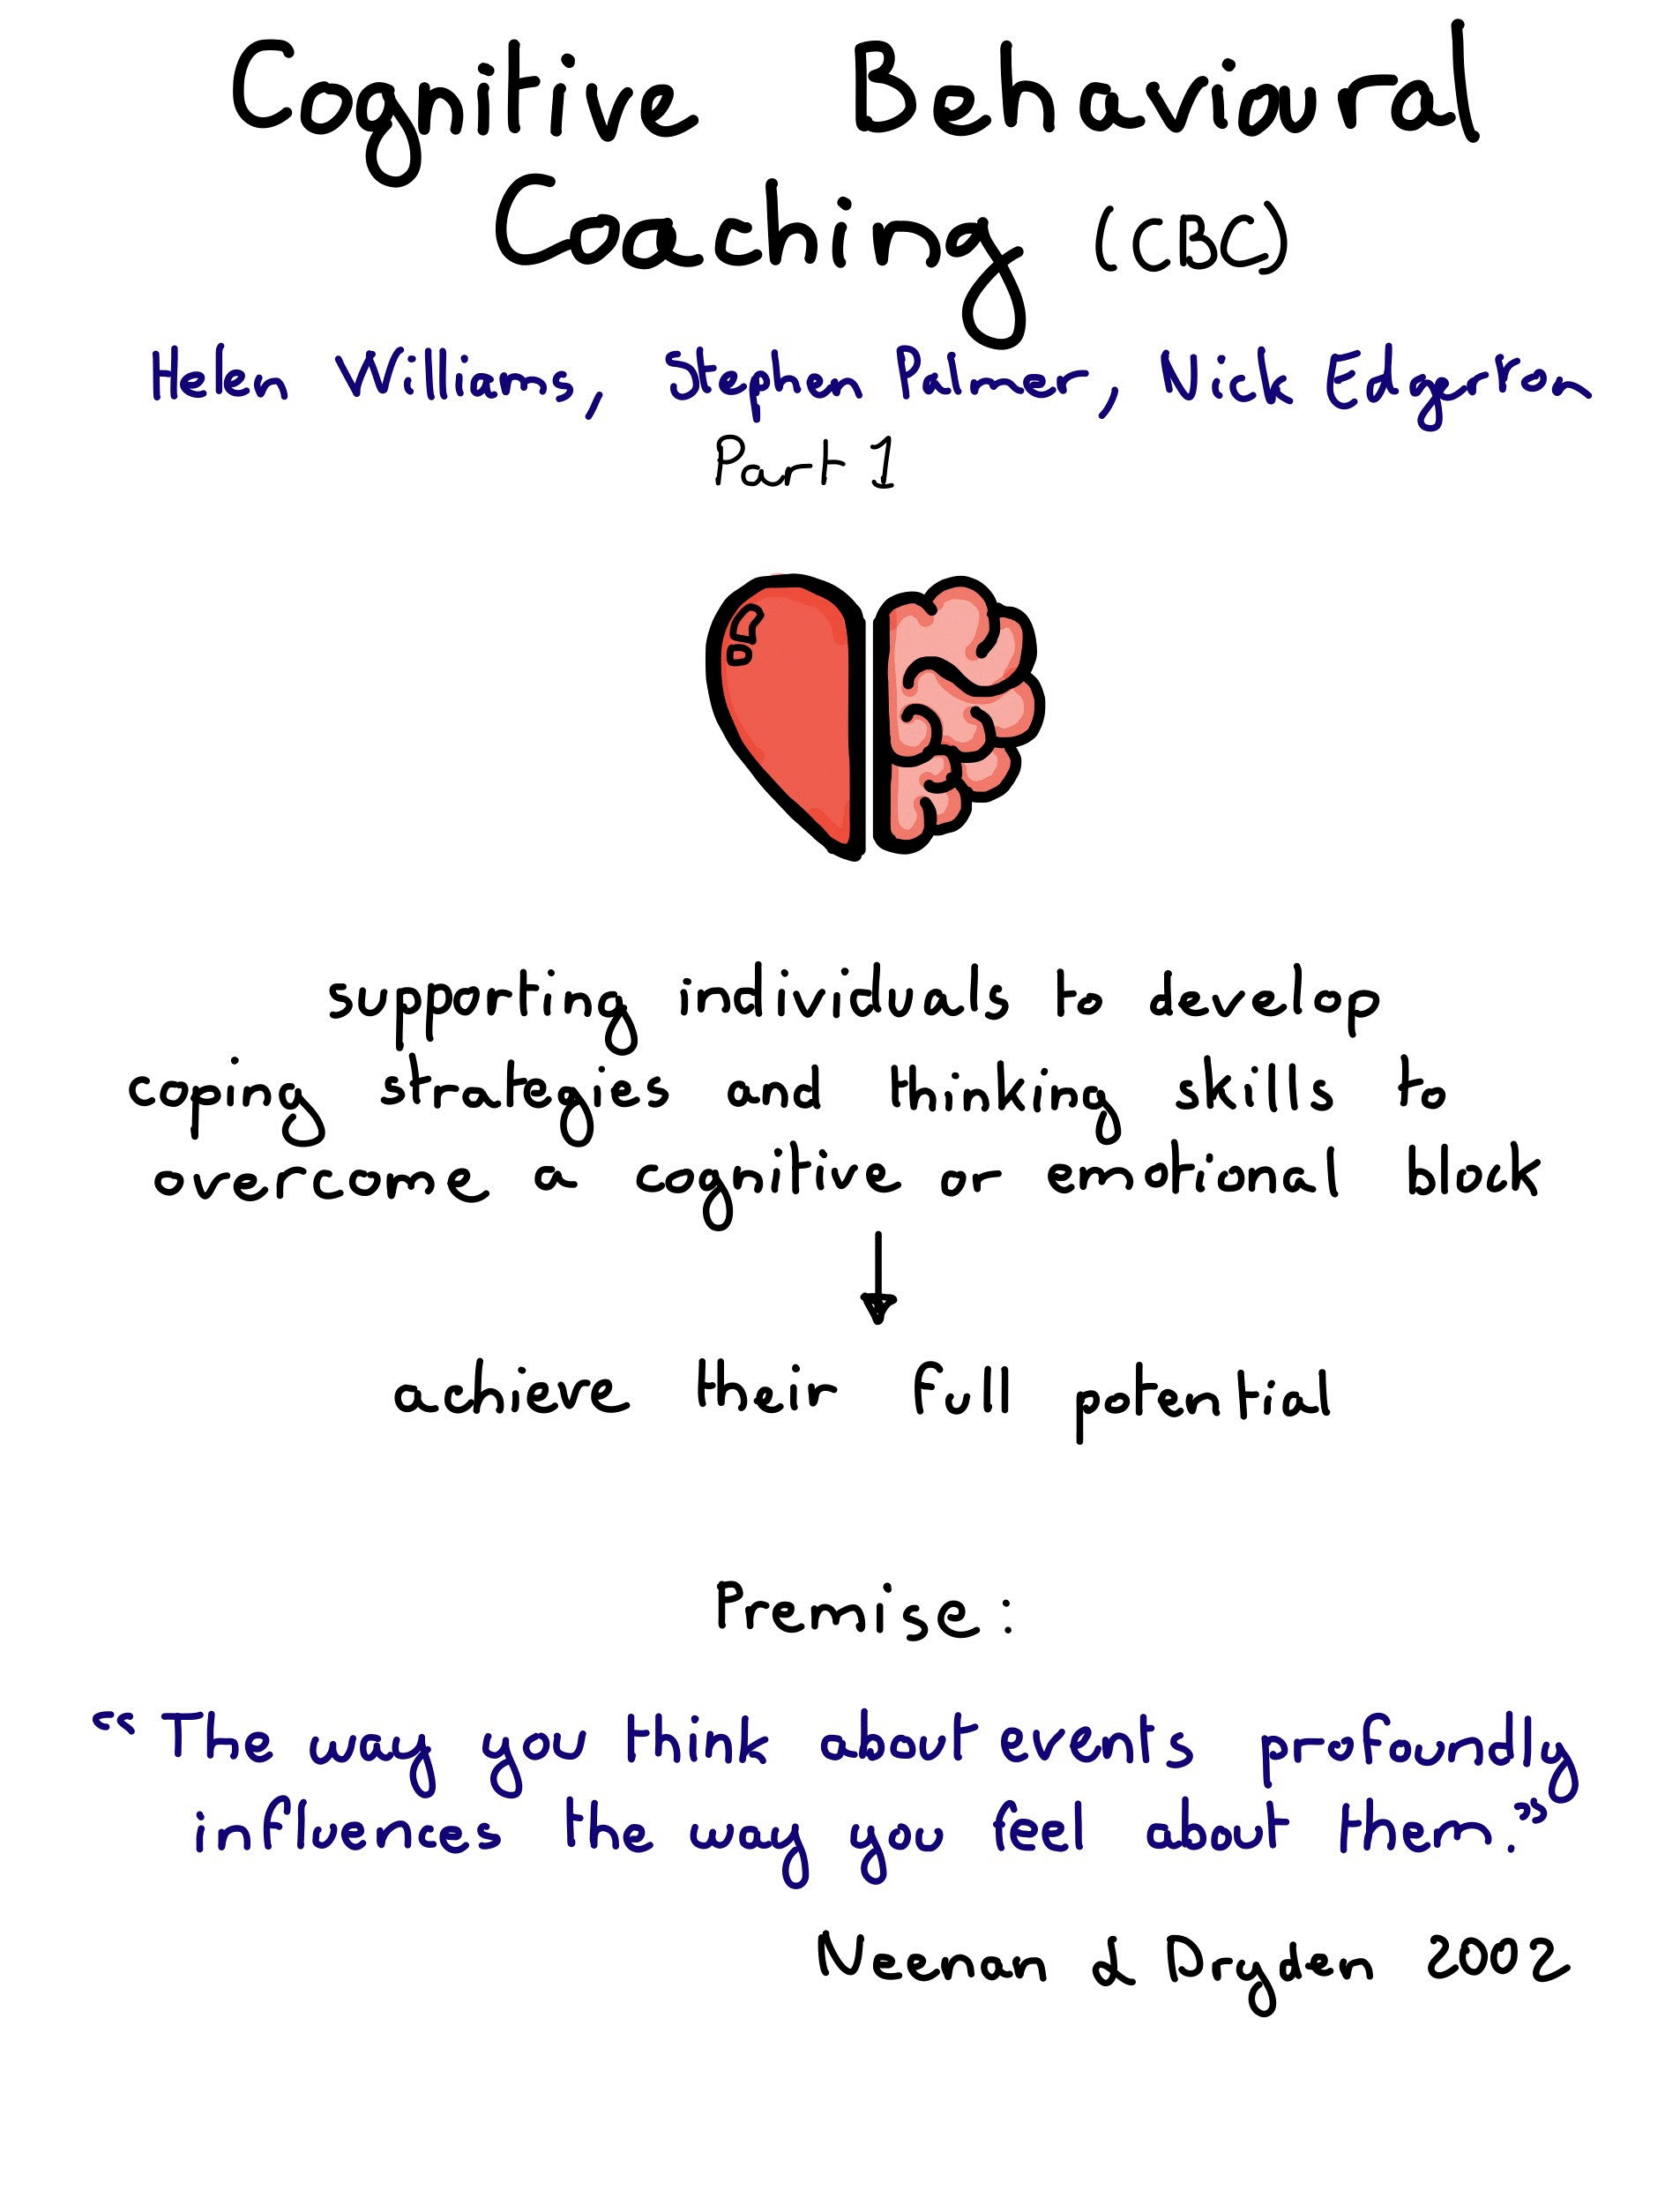 Cognitive Behavioural
Coaching (CBC)
Helen Williams, Stephen Palmer, Nick Edgerton
Part 1
supporting individuals to develop
coping strategies and thinking skills to
overcome a cognitive or emotional block
↓
achieve their full potential
Premise:
“The way you think about events profoundly
influences the way you feel about them.”
Neenan & Dryden 2002